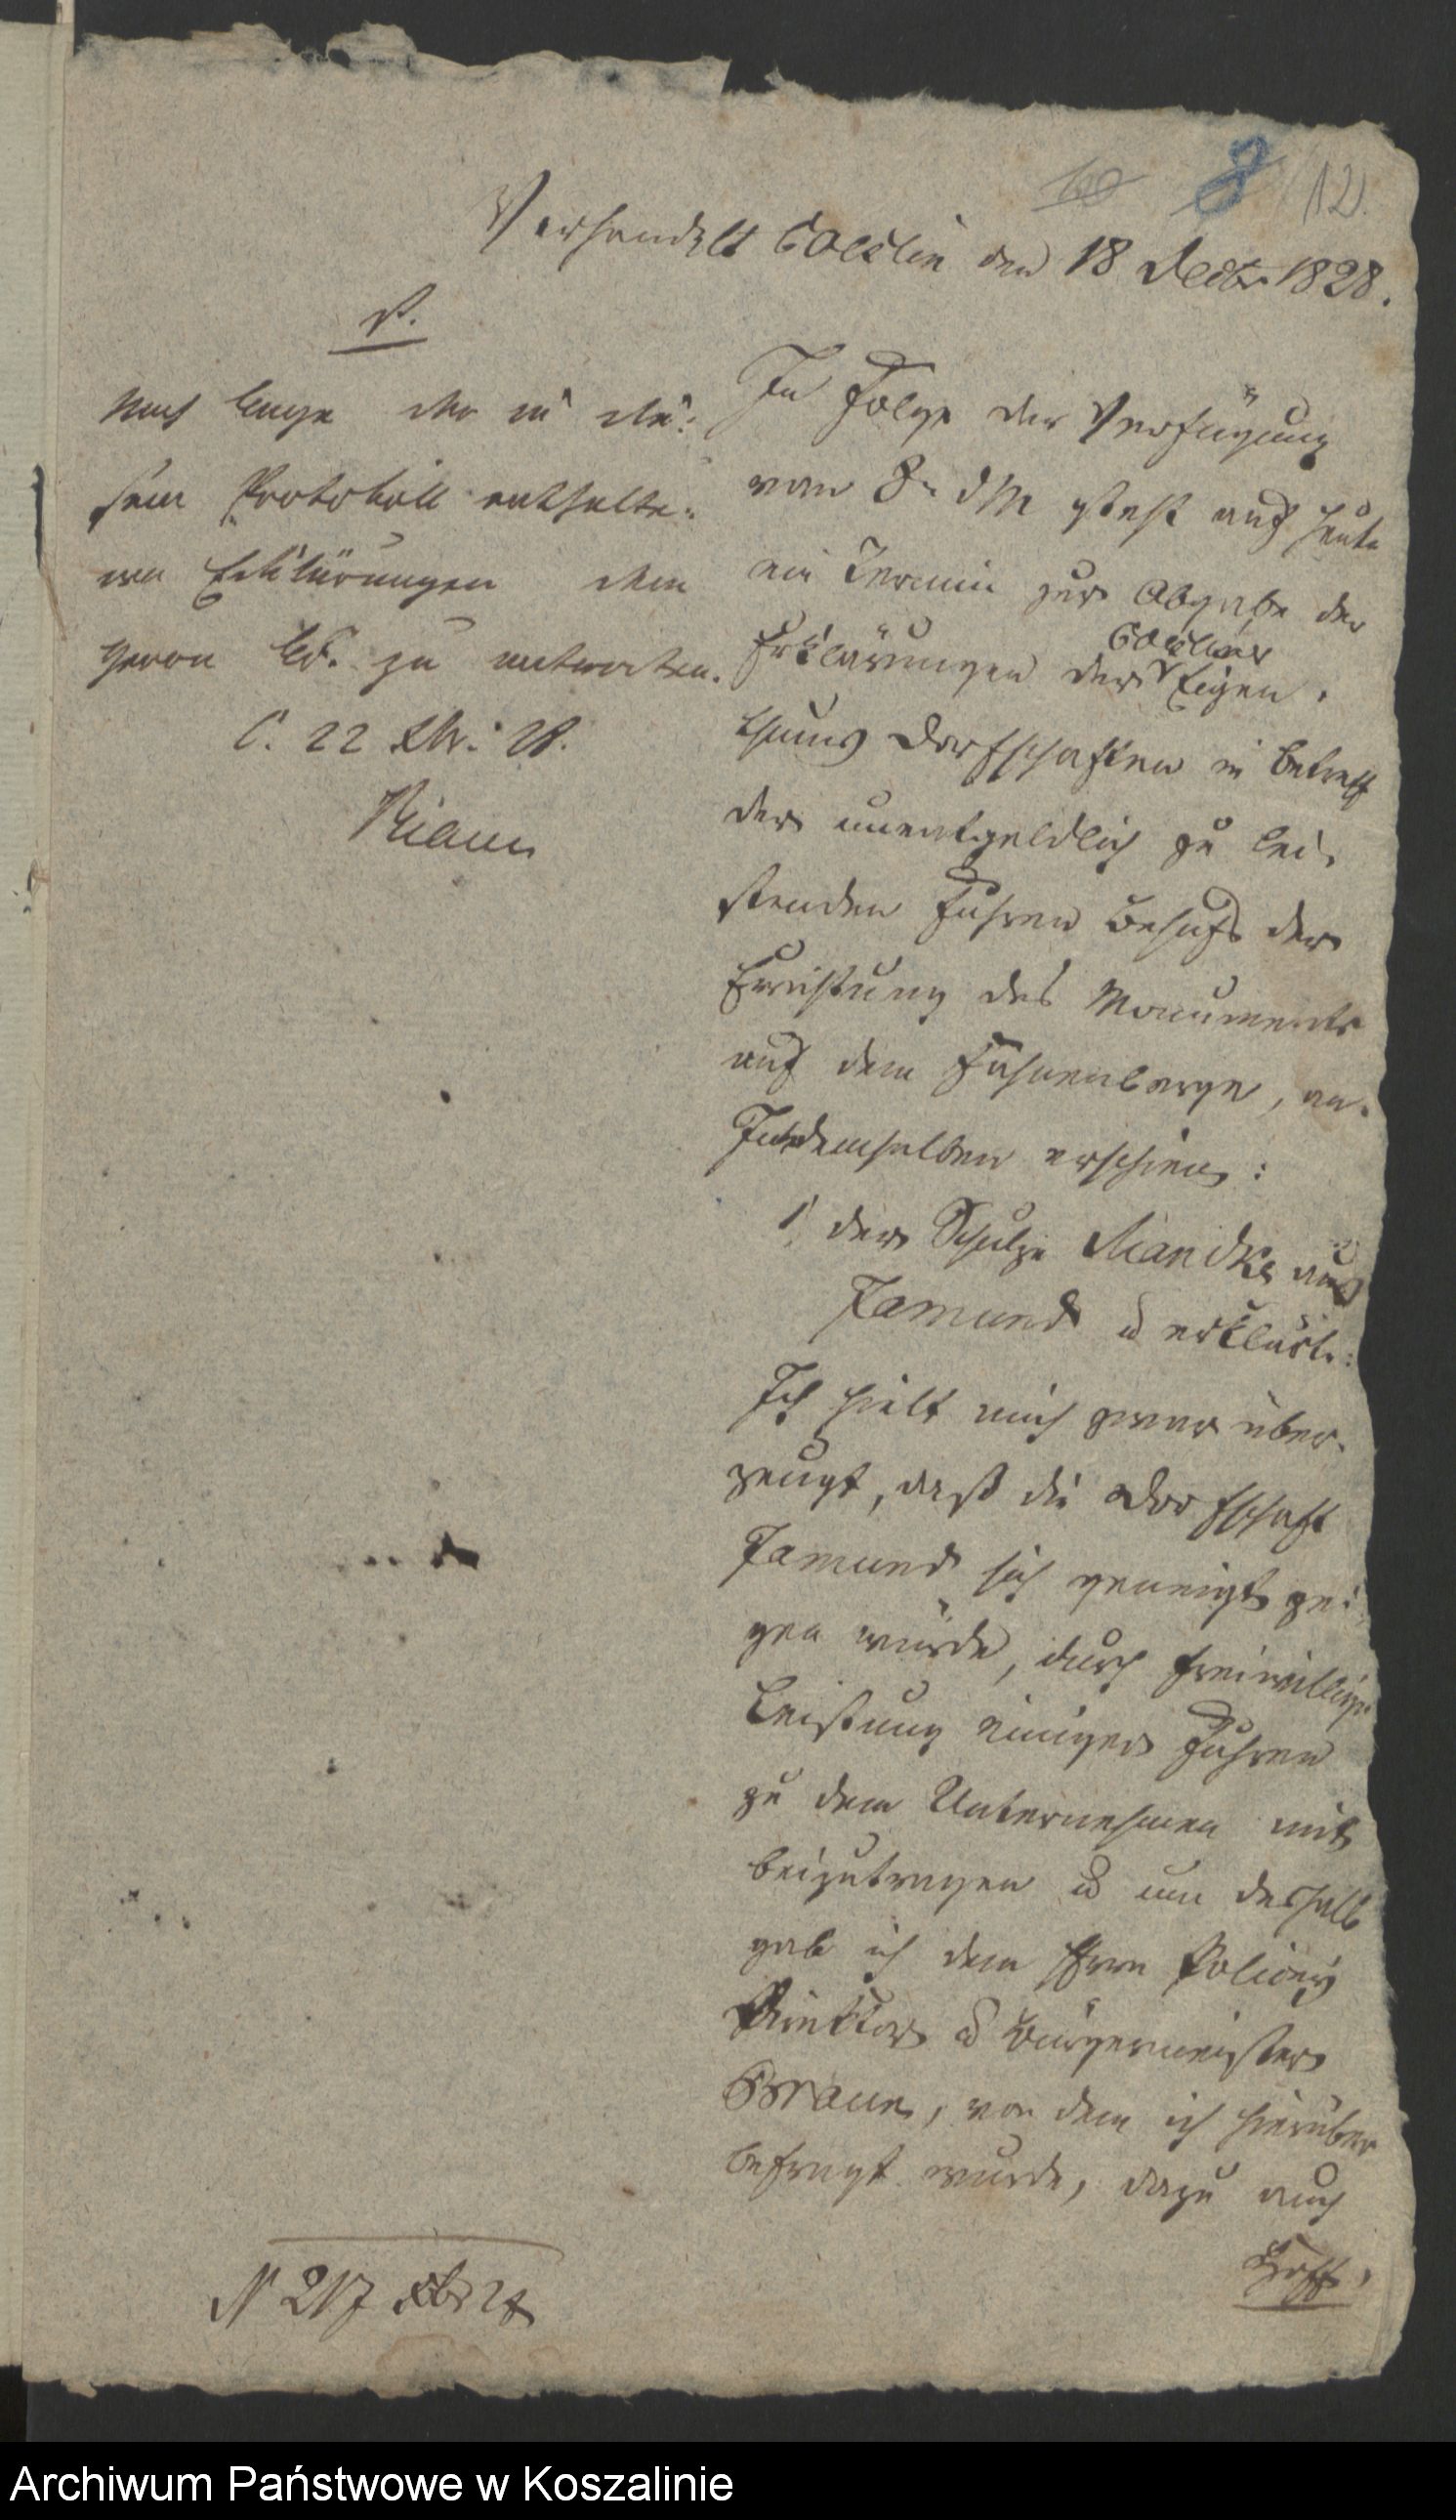 8 12
Verhandelt Coeslin den 18 Decbr 1828.
V.
Nach Lage der in die-
sem Protokoll enthalte-
nen Erklärungen dem
Herrn zu antworten.
C. 22 28.
Braun
In Folge der Verfügung
vom 8n dM steht auf heute
ein Termin zur Abgabe der
Erklärungen der Coesliner Eigen-
thums Dorfschaften in Betreff
der unentgeldlich zu lei-
stenden Fuhren Behufs der
Errichtung des Monuments
auf dem Fahnenberge, an.
In demselben erschien:
1, der Schulze aus
Jamund u erklärte:
Ich hielt mich zwar über-
zeugt, daß die Dorfschaft
Jamund sich geneigt zei-
gen würde, durch freiwillige
Leistung einiger Fuhren
zu dem Unternehmen mit
beizutragen u um deshalb
gab ich dem Herrn Polizey
Direktor u Bürgermeister
Braun, von dem ich hierüber
befragt wurde, dazu auch
Hoff-
N 217
Archiwum Państwowe w Koszalinie